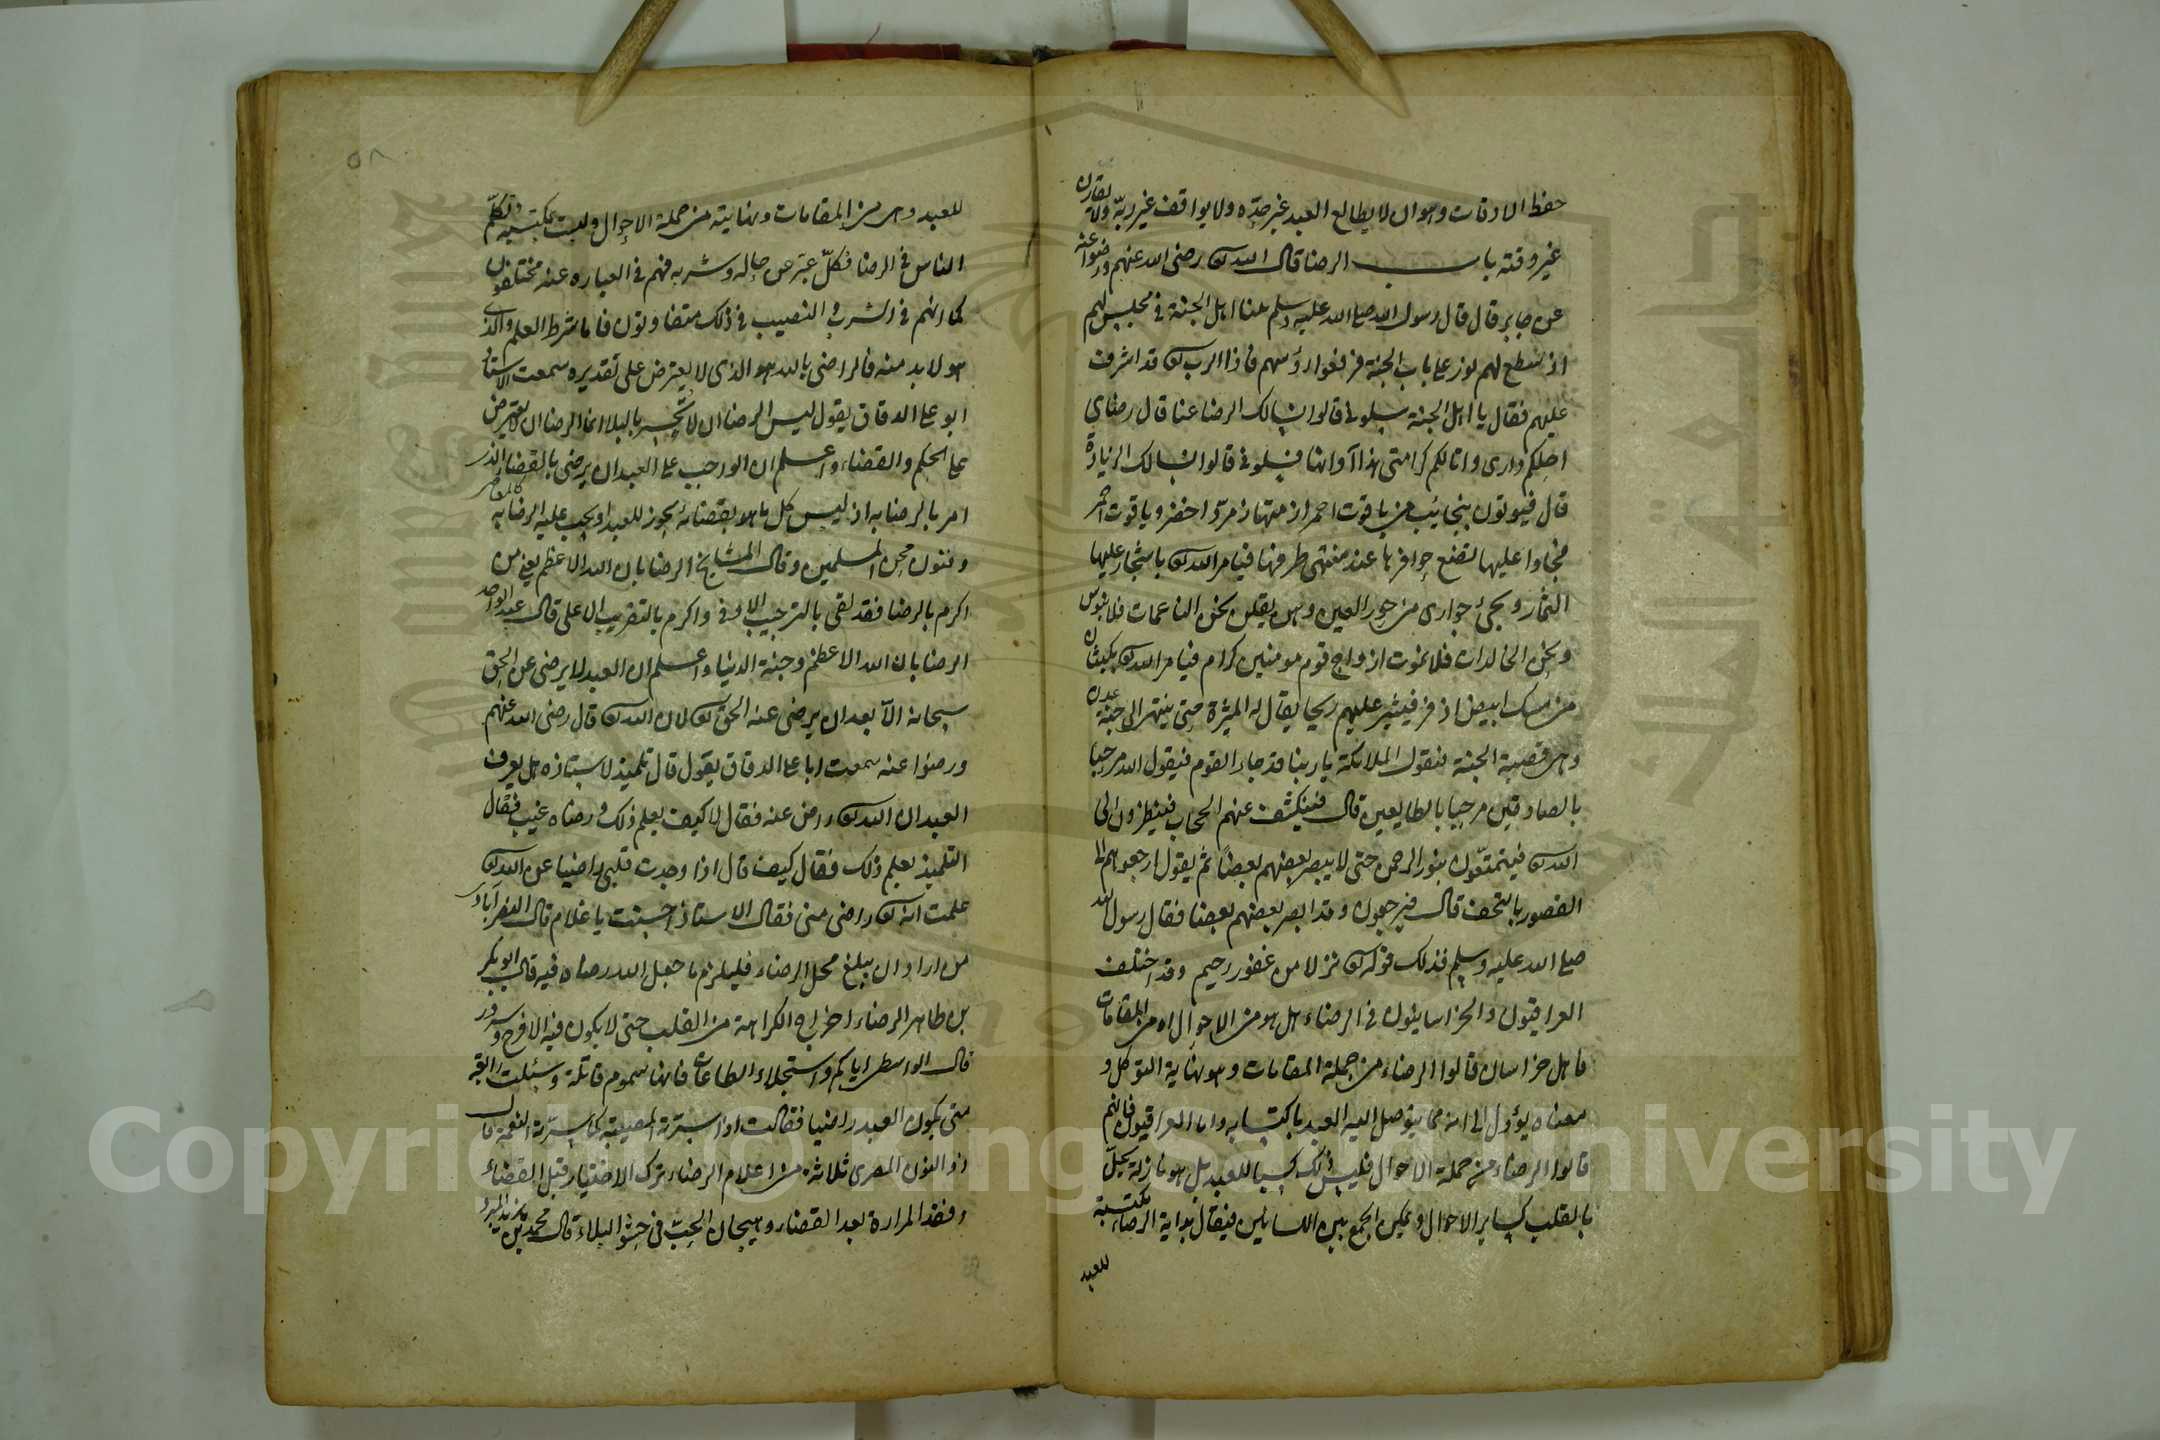 حفظ الاوقات وهو ان لا يطالع العبد غير حدّه ولا يوافق غير ربّه ولا يقارن
غير وقته باب الرضا قال الله تعالى رضى الله عنهم ورضوا عنه
عن جابر قال قال رسول الله صلى الله عليه وسلم بينا اهل الجنة في مجلس لهم
اذ سطع لهم نور على باب الجنة فرفعوا رؤسهم فاذا الرب تعالى قد اشرف
عليهم فقال يا اهل الجنة سلوني قالوا نسالك الرضا عنا قال رضاي
احلكم داري وانالكم كرامتي هذا اوانها فسلوني قالوا نسالك الزيادة
قال فيوتون بنجائب من ياقوت احمر ازمتها زمرد اخضر وياقوت احمر
فجاوا عليها تضع حوافرها عند منتهى طرفها فيامر الله تعالى باشجار عليها
الثمار وتجئ جواري من حور العين وهن يقلن نحن الناعمات فلا نبوس
ونحن الخالدات فلا نموت ازواج قوم مومنين كرام فيامر الله تعالى بكثبان
من مسك ابيض اذفر فيثير عليهم ريحا يقال له المثيرة حتى ينتهى الى جنة عدن
وهي قصبة الجنة فتقول الملائكة يا ربنا قد جاء القوم فيقول الله مرحبا
بالصادقين مرحبا بالطايعين قال فيكشف عنهم الحجاب فينظرون الى
الله تعالى فيتمتعون بنور الرحمن حتى لا يبصر بعضهم بعضا ثم يقول ارجعوهم الى
القصور بالتحف قال فيرجعون وقد ابصر بعضهم بعضا فقال رسول الله
صلى الله عليه وسلم فذلك قوله تعالى نزلا من غفور رحيم وقد اختلف
العراقيون والخراسانيون في الرضاء هل هو من الاحوال او من المقامات
فاهل خراسان قالوا الرضاء من جملة المقامات وهو نهاية التوكل و
معناه يؤول الى انه مما يتوصل اليه العبد باكتسابه واما العراقيون فانهم
قالوا الرضاء من جملة الاحوال فليس ذلك كسبا للعبد بل هو نازلة تحلّ
بالقلب كساير الاحوال ويمكن الجمع بين اللسانين فيقال بداية الرضاء مكتسبة
للعبد
٥٨
للعبد وهي من المقامات ونهايته من جملة الاحوال وليست بمكتسبة وتكلّم
الناس في الرضا فكلّ عبّر عن حاله وشربه فهم في العباره عنه مختلفون
كما انهم في الشرب و النصيب في ذلك متفاوتون فاما شرط العلم والذي
هو لا بد منه فالراضى بالله هو الذي لا يعترض على تقديره سمعت الاستاذ
ابو على الدقاق يقول ليس الرضا ان لا تحس بالبلا انما الرضا ان لا تعترض
على الحكم والقضاء واعلم ان الواجب على العبد ان يرضى بالقضا الذي
امر بالرضا به اذ ليس كل ما هو بقضائه يجوز للعبد او يجب عليه الرضا به كالمعاصي
وفنون محن المسلمين وقال المشايخ الرضا باب الله الاعظم يعني من
اكرم بالرضا فقد لقى بالترحيب الاوفى واكرم بالتقريب الاعلى قال عبد الواحد
الرضا باب الله الاعظم وجنة الدنيا واعلم ان العبد لا يرضى عن الحق
سبحانه الا بعد ان يرضى عنه الحق تعالى لان الله تعالى قال رضى الله عنهم
ورضوا عنه سمعت ابا على الدقاق يقول قال تلميذ لاستاذه هل يعرف
العبد ان الله تعالى راض عنه فقال لا كيف يعلم ذلك و رضاه غيب فقال
التلميذ يعلم ذلك فقال كيف قال اذا وجدت قلبي راضيا عن الله تعالى
علمت انه تعالى راضى منى فقال الاستاذ احسنت يا غلام قال النصرآبادي
من اراد ان يبلغ محل الرضاء فليلزم ما جعل الله رضاه فيه قال ابو بكر
بن طاهر الرضاء اخراج الكراهة من القلب حتى لا يكون فيه الا فرح وسرور
قال الواسطى اياكم واستحلاء الطاعات فانها سموم قاتلة وسئلت رابعة
متى يكون العبد راضيا فقالت اذا سرّته المصيبة كما سرّته النعمة قال
ذوالنون المصرى ثلاثة من اعلام الرضاء ترك الاختيار قبل القضاء
وفقد المرارة بعد القضاء وهيجان الحبّ في حشو البلاء قال محمد بن يزيد المبرد
Copyright © King Saud University